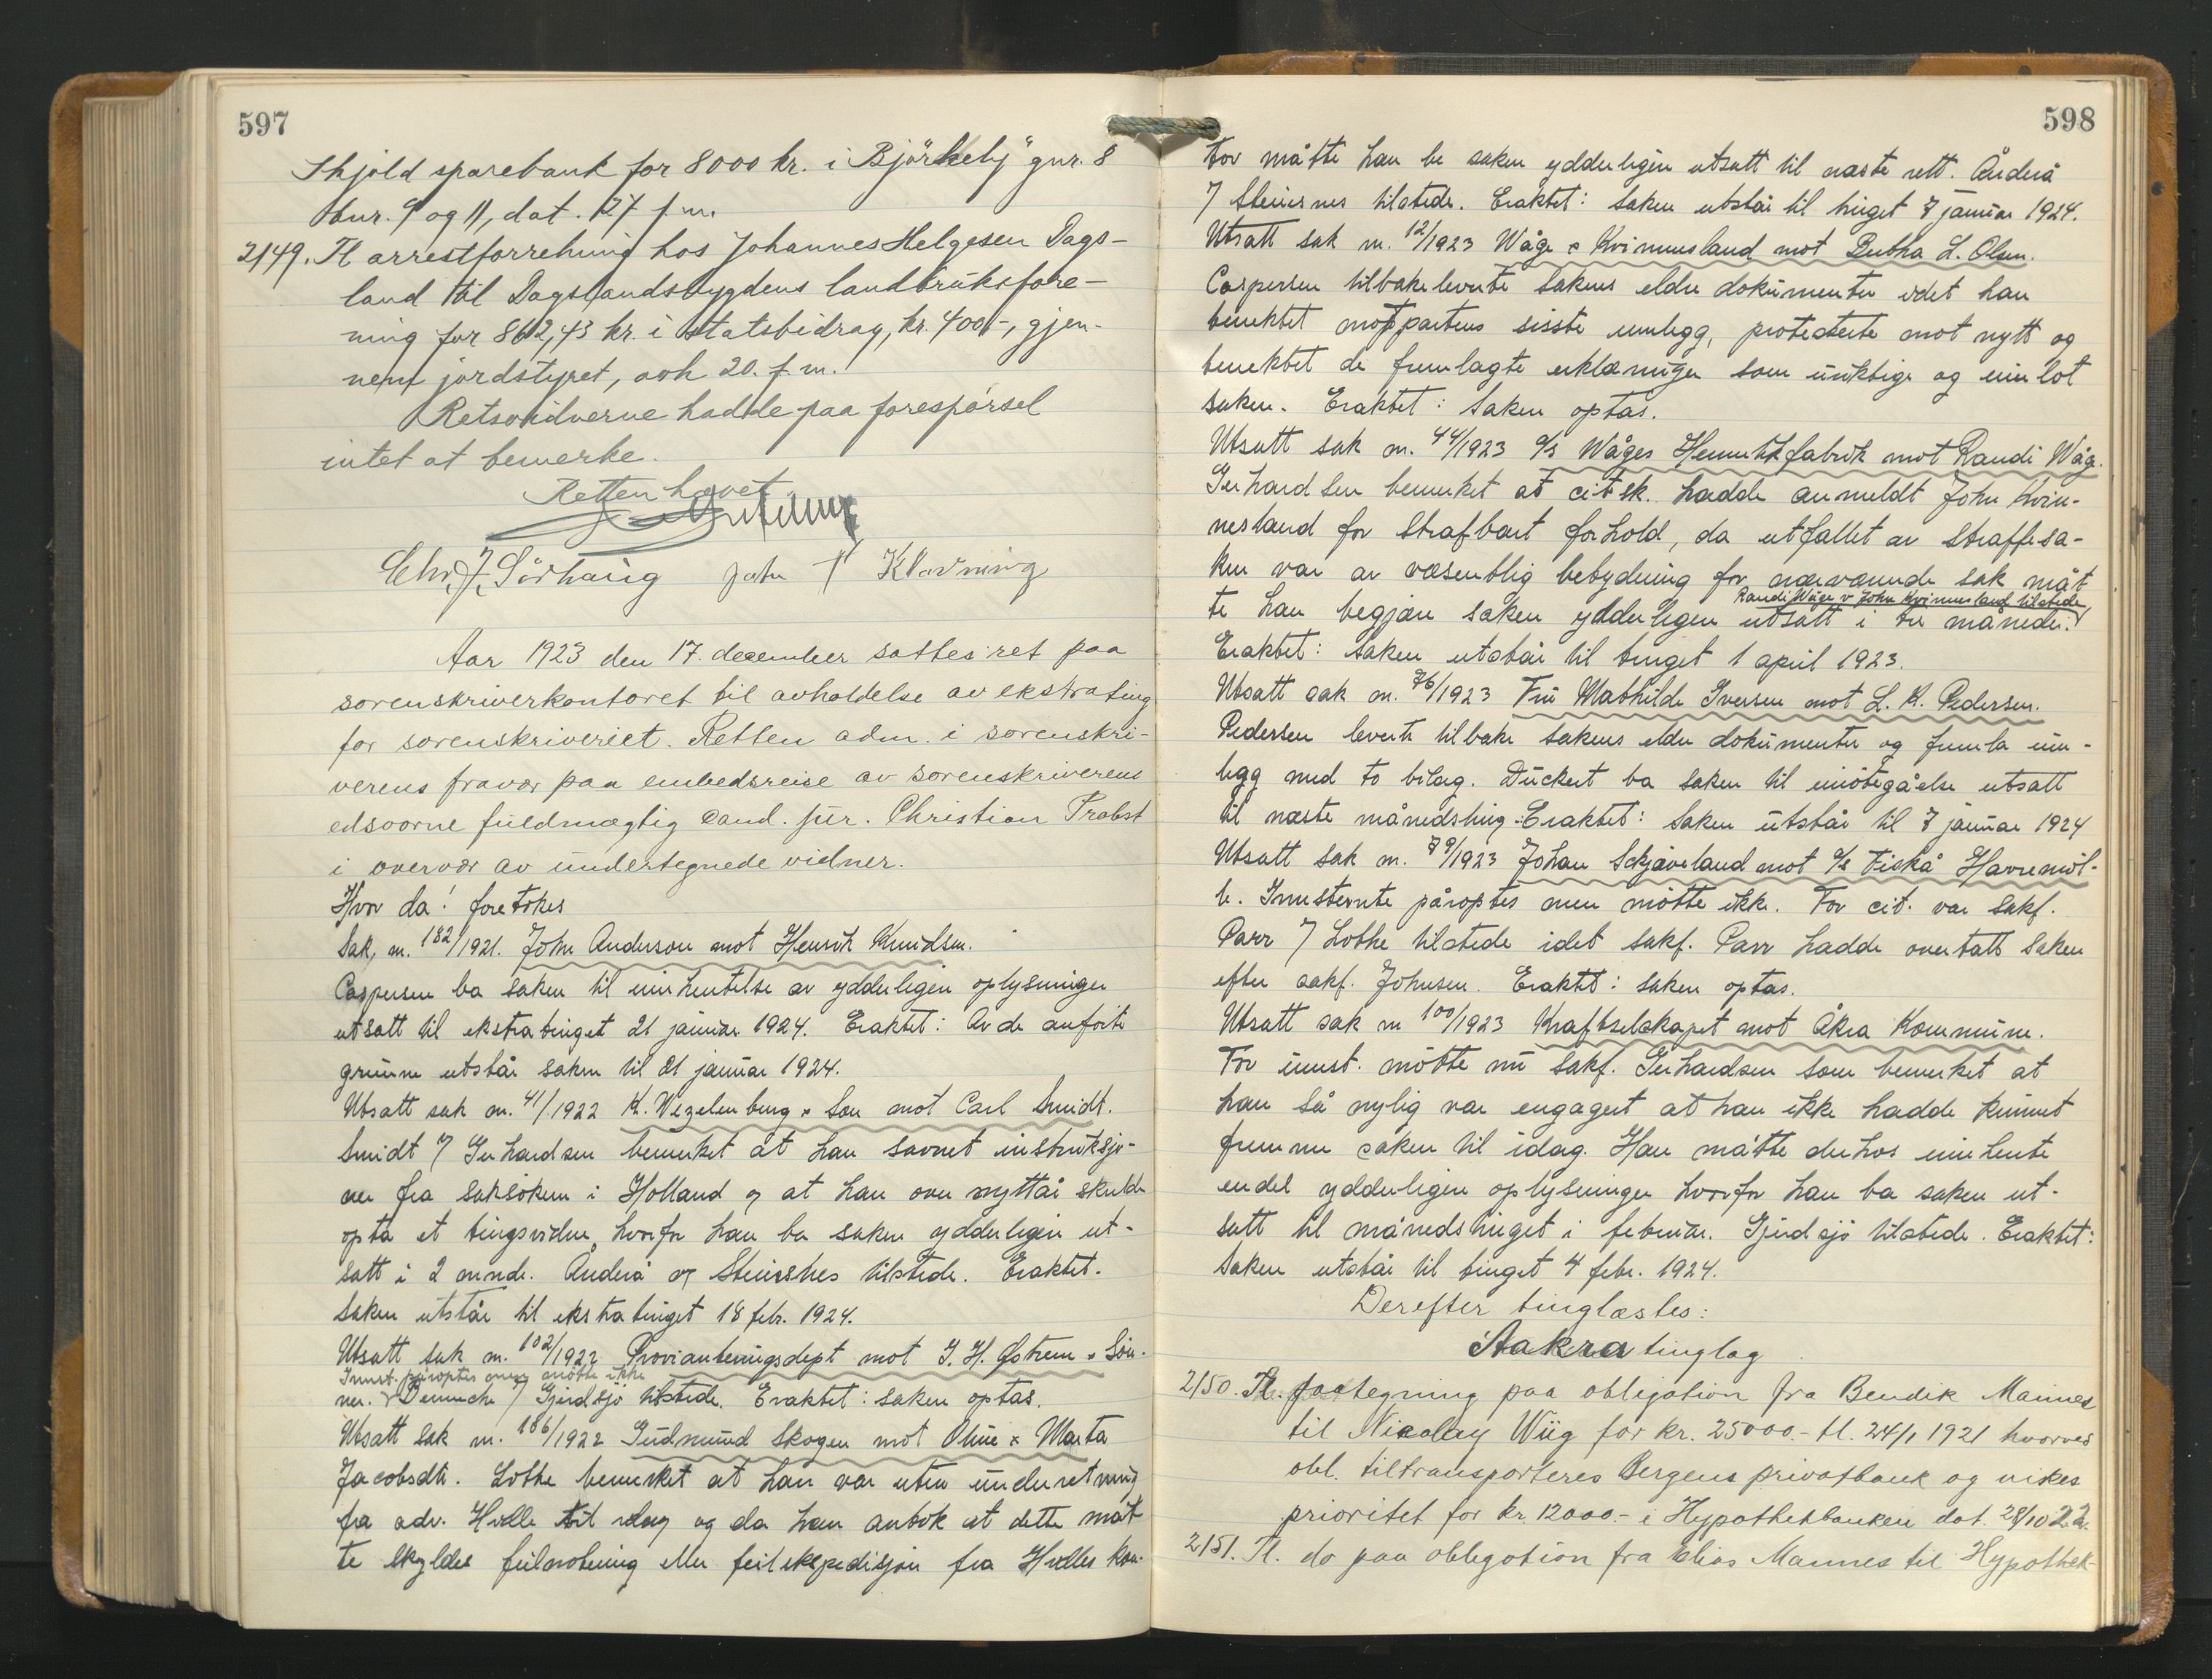 597
Skjold sparebank for 8000 kr. i "Bjørkely" gnr. 8
bnr. 9 og 11, dat. 27 f.m.
2149. Tl arrestforretning hos Johannes Helgesen Dags-
land til Dagslandsbygdens landbruksfore-
ning for 862,43 kr. i statsbidrag, kr. 400,-, gjen-
nem jordstyret, avh 20. f.m.
Retsvidnerne hadde paa forespørsel
intet at bemerke.
Retten hævet
Chr. J. Sørhaug John Klovning
Aar 1923 den 17. december sattes ret paa
sorenskriverkontoret til avholdelse av ekstrating
for sorenskriveriet. Retten adm. i sorenskri-
verens fravær paa embedsreise av sorenskriverens
edsvorne fuldmægtig cand. jur. Christian Probst
i overvær av undertegnede vidner.
Hvor da! foretokes
Sak, nr. 182/1921. John Anderson mot Henrik Knudsen.
Caspersen ba saken til innhentelse av ydderligere oplysninger
utsatt til ekstratinget 21 januar 1924. Eraktet: Av de anførte
grunne utstår saken til 21 januar 1924.
Utsatt sak nr. 41/1922 K. Wezelenburg & Son mot Carl Smidt.
Smidt v/ Gerhardsen bemerket at han savnet instruksjo-
ner fra saksøkeren i Holland og at han over nyttår skulde
opta et tingsvidne, hvorfor han ba saken ydderligere ut-
satt i 2 mndr. Anderå v/ Steinsnes tilstede. Eraktet.
Saken utstår til ekstratinget 18 febr. 1924.
Utsatt sak nr. 102/1922 Provianteringsdept mot J. H. Østrem & Søn-
Innst. påroptes men møtte ikke
ner. v/ Gjerdsjø tilstede. Eraktet: saken optas.
Utsatt sak nr. 186/1922 Gudmund Skogen mot Oline & Marta
Jacobsdtr. Lothe bemerket at han var uten underretning
fra adv. Hvolle til idag og da han antok at dette måt
te skyldes feilnotering eller feilekspedisjon fra Hvolles kon-
598
tor måtte han be saken ydderligere utsatt til næste rett. Anderå
v/ Steinsnes tilstede. Eraktet: Saken utstår til tinget 7 januar 1924.
Utsatt sak nr. 12/1923 Wåge & Kvinnesland mot Bertha L. Olsen.
Caspersen tilbakeleverte sakens eldre dokumenter idet han
benektet motpartens sisste innlegg, protesterte mot nytt og
benektet de fremlagte erklæringer som uriktige og innlot
saken. Eraktet: Saken optas.
Utsatt sak nr. 44/1923 A/S Wåges Hermetikfabrik mot Randi Wåge.
Gerhardsen bemerket at citsk. hadde anmeldt John Kvin-
nesland for strafbart forhold, da utfallet av straffesa-
ken var av væsentlig betydning for nærværende sak måt
Randi Wåge v John Kvinnesland tilstede
te han begjære saken ydderligere utsatt i tre måneder.
Eraktet: Saken utstår til tinget 1 april 1923.
Utsatt sak nr. 76/1923 Fru Mathilde Iversen mot L. K. Pedersen.
Pedersen leverte tilbake sakens eldre dokumenter og fremla inn-
legg med to bilag. Duckert ba saken til imøtegåelse utsatt
til næste månedsting. Eraktet: Saken utstår til 7 januar 1924
Utsatt sak nr. 79/1923 Johan Skjæveland mot A/S Fiskå Havremøl-
le. Innstevnte påroptes men møtte ikke. For cit. var sakf.
Parr v/ Lothe tilstede idet sakf. Parr hadde overtatt saken
efter sakf. Johnsen. Eraktet: saken optas.
Utsatt sak nr 100/1923 Kraftselskapet mot Åkra Kommune.
For innst. møtte nu sakf. Gerhardsen som bemerket at
han så nylig var engagert at han ikke hadde kunnet
fremme saken til idag. Han måtte derhos innhente
endel ydderligere oplysninger hvorfor han ba saken ut-
satt til månedstinget i februar. Gjerdsjø tilstede. Eraktet:
Saken utstår til tinget 4 febr. 1924.
Derefter tinglæstes:
Aakra tinglag
2150. Tl. paategning paa obligation fra Bendik Mannes
til Nicolay Wiig for kr. 25000.- tl. 24/1 1921 hvorved
obl. tiltransporteres Bergens privatbank og vikes
prioritet for kr. 12000.- i Hypothekbanken dat. 28/10 22.
2151. Tl. do paa obligation fra Elias Mannes til Hypothek-